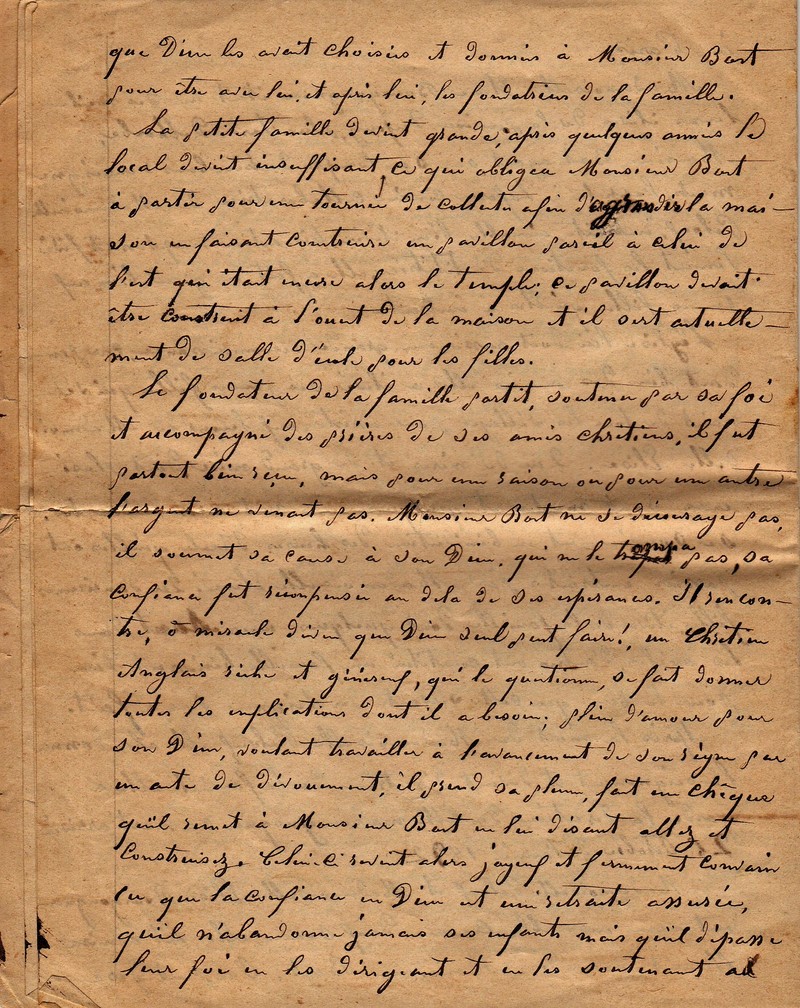 que Dieu les avait choisies et données à Monsieur Bost
pour être avec lui, et après lui, les fondatrices de la famille.
La petite famille devint grande, après quelques années le
local devint insuffisant, ce qui obligea Monsieur Bost
à partir pour une tournée de collecte afin d'agrandir la mai-
son en faisant construire un pavillon pareil à celui de
l'est qui était encore alors le temple; ce pavillon devait
être construit à l'ouest de la maison et il sert actuelle-
ment de salle d'école pour les filles.
Le fondateur de la famille partit, soutenu par sa foi
et accompagné des prières de ses amis chrétiens, il fut
partout bien reçu, mais pour une raison ou pour une autre
l'argent ne venait pas. Monsieur Bost ne se décourage pas,
il soumet sa cause à son Dieu, qui ne le trompa pas, sa
confiance fut récompensée au dela de ses espérances. Il rencon-
tre, ô miracle divin que Dieu seul peut faire!, un Chrétien
Anglais riche et généreux, qui le questionne, se fait donner
toutes les explications dont il a besoin; plein d'amour pour
son Dieu, voulant travailler à l'avancement de son règne par
un acte de dévouement, il prend sa plume, fait un chèque
qu'il remet à Monsieur Bost en lui disant allez et
construisez. Celui-ci revint alors joyeux et fermement convain
cu que la confiance en Dieu est une retraite assurée,
qu'il n'abandonne jamais ses enfants mais qu'il dépasse
leur foi en les dirigeant et en les soutenant au